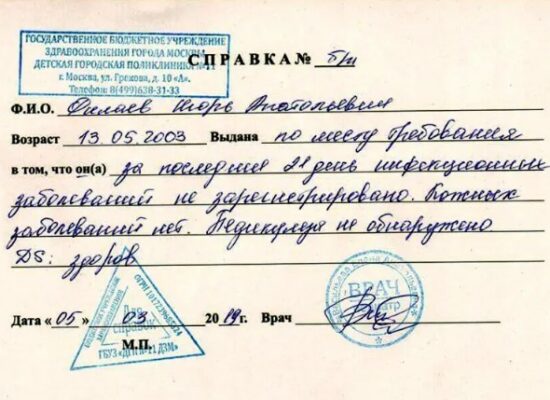 ГОСУДАРСТВЕННОЕ БЮДЖЕТНОЕ УЧРЕЖДЕНИЕ
ЗДРАВООХРАНЕНИЯ ГОРОДА МОСКВЫ
ДЕТСКАЯ ГОРОДСКАЯ ПОЛИКЛИНИКА №11
г. Москва, ул. Грекова, д. 10 «А».
Телефон: 8(499)638-31-33
СПРАВКА № б/н
Ф.И.О. Филаев Игорь Анатольевич
Возраст 13.05.2003 Выдана по месту требования
в том, что он(а) за последние 21 день инфекционных
заболеваний не зарегистрировано. Кожных
заболеваний нет. Педикулеза не обнаружено
DS: здоров
Для
справок
ГБУЗ «ДГП №11 ДЗМ»
ВРАЧ
Дата «05» 03 2019г. Врач
М.П.